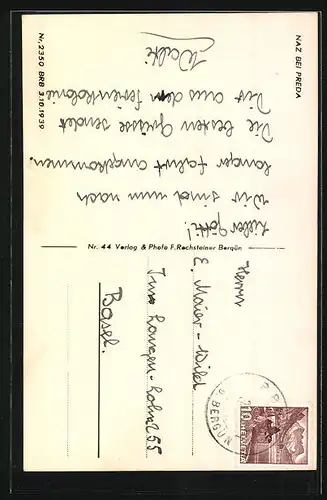 NAZ BEI PREDA
Lieber Götti!
Wir sind nun nach
langer Fahrt angekommen.
Die besten Grüsse sendet
Dir aus dem Ferienkolonie
Walti
Nr. 2350 BRB 3.10.1939
Nr. 44 Verlag & Photo F. Rechsteiner Bergün
Herrn
E. Maier-Wild
Im Langen-Lohn 255
Basel.
BERGÜN
10 HELVETIA